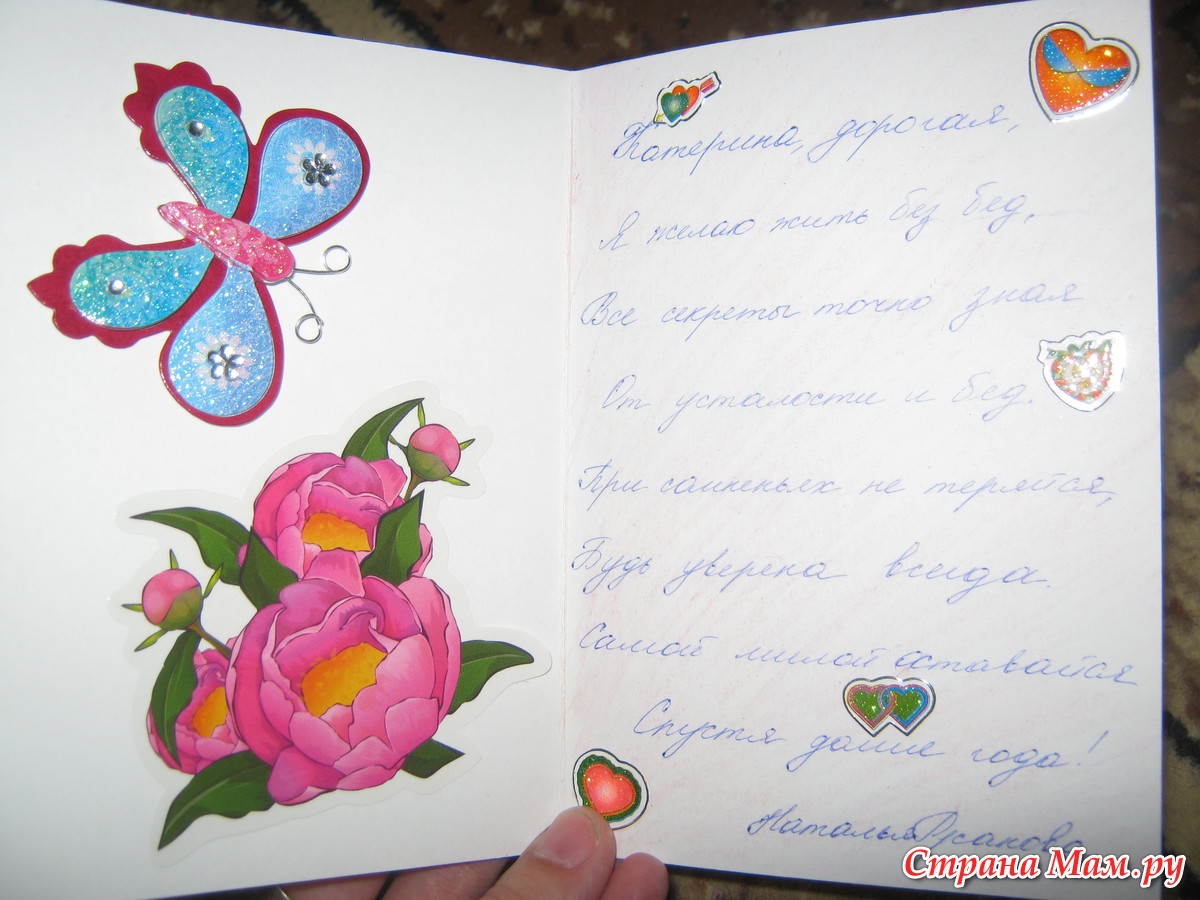 Катерина, дорогая,
Я желаю жить без бед,
Все секреты точно зная
От усталости и бед.
При сомненьях не теряйся,
Будь уверена всегда.
Самой милой оставайся
Спустя долгие года!
Наталья
Страна Мам.ру